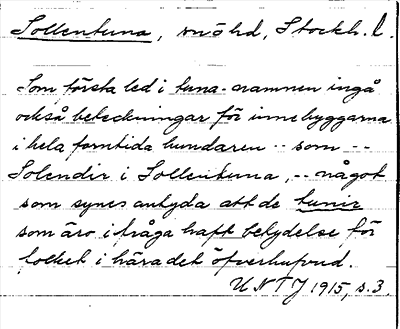 Sollentuna, snöhd, Stockh. l.
Som första led i tuna-namnen ingå
också beteckningar för innebyggarna
i hela forntida hundaren -- som --
Solendir i Sollentuna, -- något
som synes antyda att de tunir
som äro i fråga haft betydelse för
folket i häradet öfverhufvud.
UNTJ 1915, s. 3.